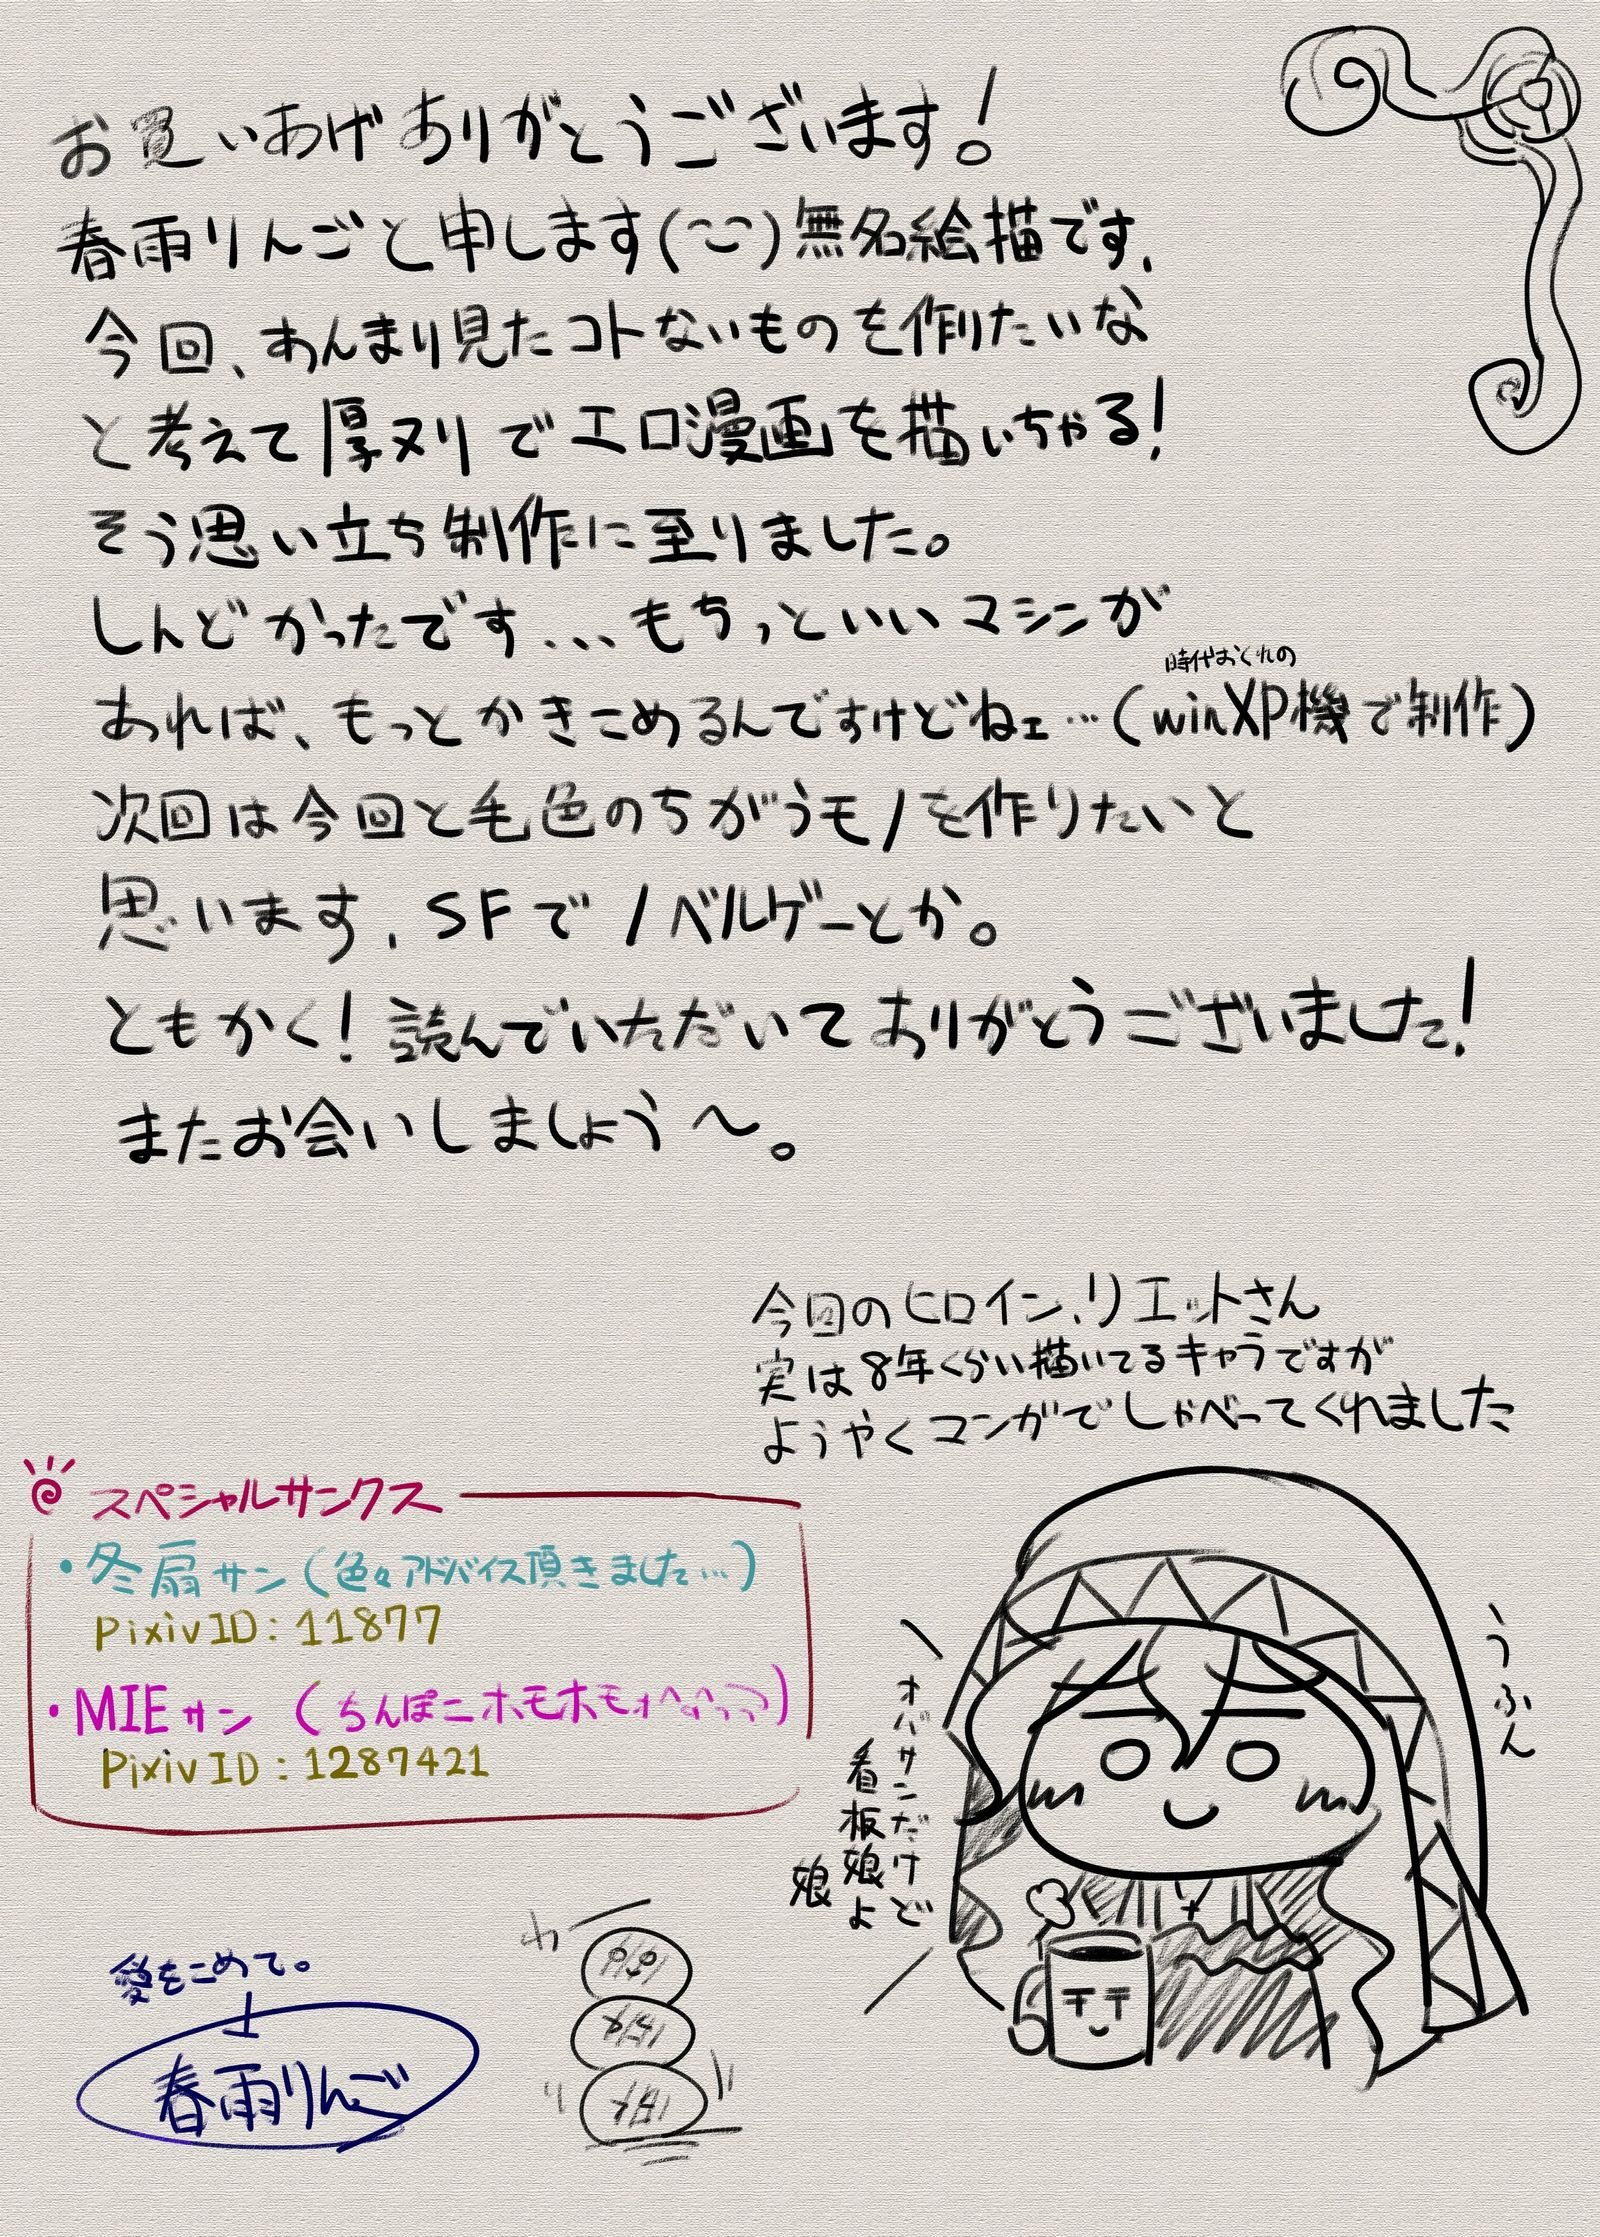 お買いあげありがとうございます!
春雨りんごと申します(~ー~)無名絵描です、
今回、あんまり見たコトないものを作りたいな
と考えて厚ヌリでエロ漫画を描いちゃる!
そう思い立ち制作に至りました。
しんどかったです...もちっといいマシンが
あれば、もっとかきこめるんですけどねェ…(時代おくれのwinXP機で制作)
次回は今回と毛色のちがうモノを作りたいと
思います、SFでノベルゲーとか。
ともかく!読んでいただいてありがとうございました!
またお会いしましょう~。
今回のヒロイン、リエットさん
実は8年くらい描いてるキャラですが
ようやくマンガでしゃべってくれました
スペシャルサンクス
・冬扇サン(色々アドバイス頂きました…)
PixivID:11877
・MIEサン(ちんぽニホモホモォ
PixivID:1287421
うふん
オバサンだけど
看板娘よ
娘
愛をこめて。
春雨りんご